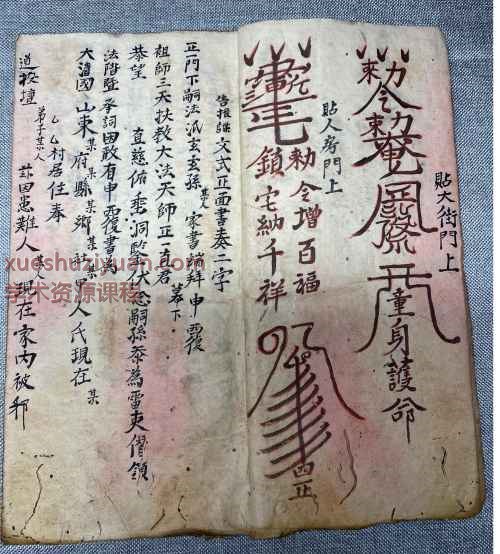 貼大街門上
童身護命
貼人房門上
勅令增百福
鎮宅納千祥
四正
告投疏文式正面書奏二字
正一門下嗣法派玄玄孫某人家書端拜申覆
祖師三天扶教大法天師正一真君幕下
恭望
直慈俯垂洞鑒伏念嗣孫忝為雷吏僭領
法階暨奉詞因敢有申覆書為
大清國山東某府某縣某鄉某社某甲人氏現在某
乙乙村居住奉
道投壇弟子某人詐因患難人某人現在家內被邪
xueshuziyuan.com
学术资源课程